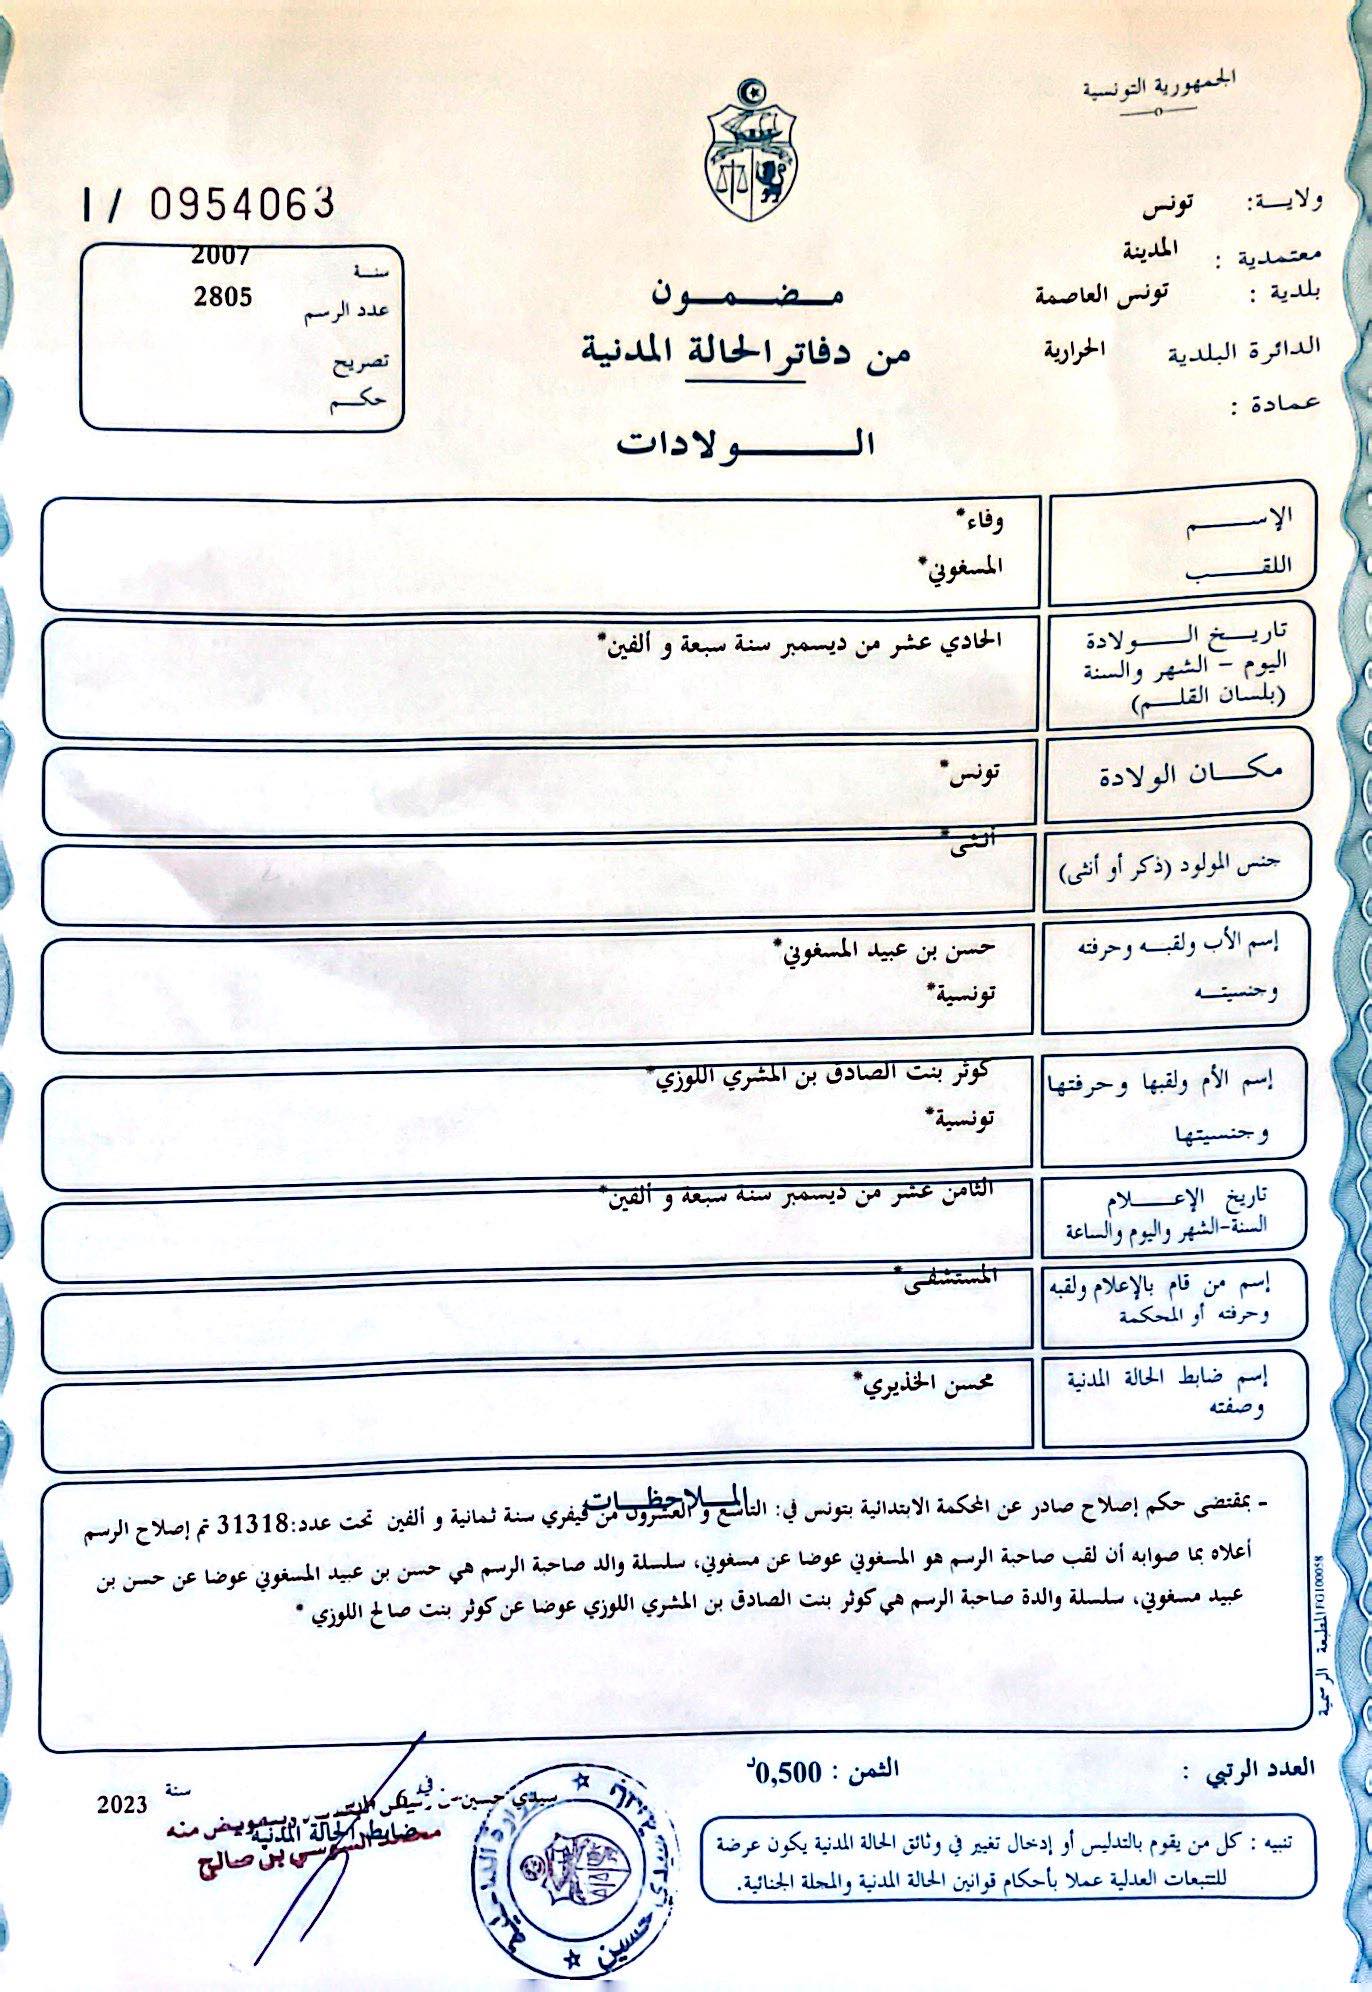 الجمهورية التونسية
ولايــة: تونس
معتمدية : المدينة
بلدية : تونس العاصمة
الدائرة البلدية الحرارية
عمادة :
I / 0954063
سنـة 2007
عدد الرسم 2805
تصريح
حكـم
مـضـمـون
من دفاتر الحالة المدنية
الـولادات
الإســم وفاء*
اللقــب المسغوني*
تاريـخ الـولادة الحادي عشر من ديسمبر سنة سبعة و ألفين*
اليوم - الشهر والسنة
(بلسان القلـم)
مكـان الولادة تونس*
جنس المولود (ذكر أو أنثى) أنثى*
إسم الأب ولقبـه وحرفته حسن بن عبيد المسغوني*
وجنسيتـه تونسية*
إسم الأم ولقبها وحرفتها كوثر بنت الصادق بن المشري اللوزي*
وجنسيتها تونسية*
تاريخ الإعـلام الثامن عشر من ديسمبر سنة سبعة و ألفين*
السنة-الشهر واليوم والساعة
إسم من قام بالإعلام ولقبه المستشفى*
وحرفته أو المحكمة
إسم ضابط الحالة المدنية محسن الخذيري*
وصفته
الملاحظـات
- بمقتضى حكم إصلاح صادر عن المحكمة الابتدائية بتونس في: التاسع و العشرون من فيفري سنة ثمانية و ألفين تحت عدد:31318 تم إصلاح الرسم
أعلاه بما صوابه أن لقب صاحبة الرسم هو المسغوني عوضا عن مسغوني، سلسلة والد صاحبة الرسم هي حسن بن عبيد المسغوني عوضا عن حسن بن
عبيد مسغوني، سلسلة والدة صاحبة الرسم هي كوثر بنت الصادق بن المشري اللوزي عوضا عن كوثر بنت صالح اللوزي *
المطبعة الرسمية FG100058
العدد الرتبي :
الثمن : 0,500د
تنبيه : كل من يقوم بالتدليس أو إدخال تغيير في وثائق الحالة المدنية يكون عرضة
للتتبعات العدلية عملا بأحكام قوانين الحالة المدنية والمجلة الجنائية.
سيدي حسين في 6 سنة 2023
ضابط الحالة المدنية
محمد السوسي بن صالح
حسين